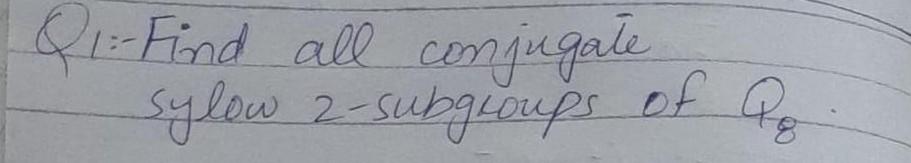 Q1:- Find all conjugate
sylow 2-subgroups of Q₈.